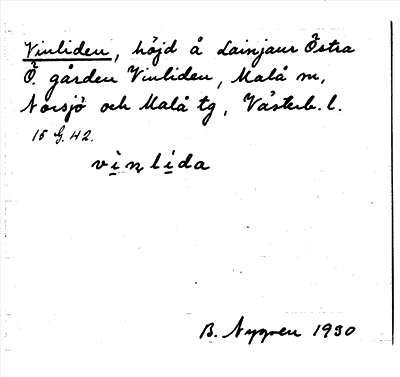 Vinliden, höjd å Lainjaur Östra
Ö. gården Vinliden, Malå sn,
Norsjö och Malå tg, Västerb. l.
15 G. 42.
vinlida
B. Nygren 1930